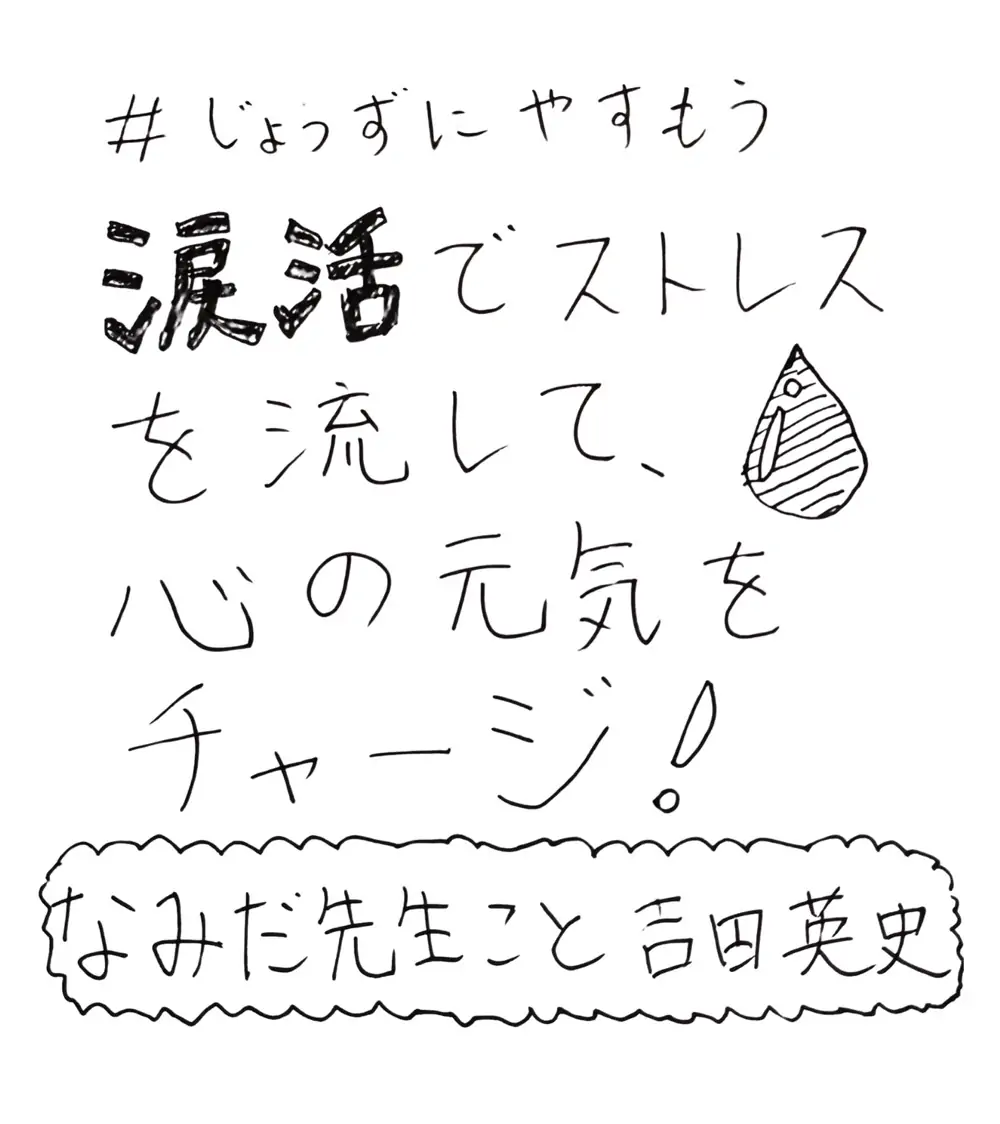 #じょうずにやすもう
涙活でストレス
を流して、
心の元気を
チャージ!
なみだ先生こと吉田英史